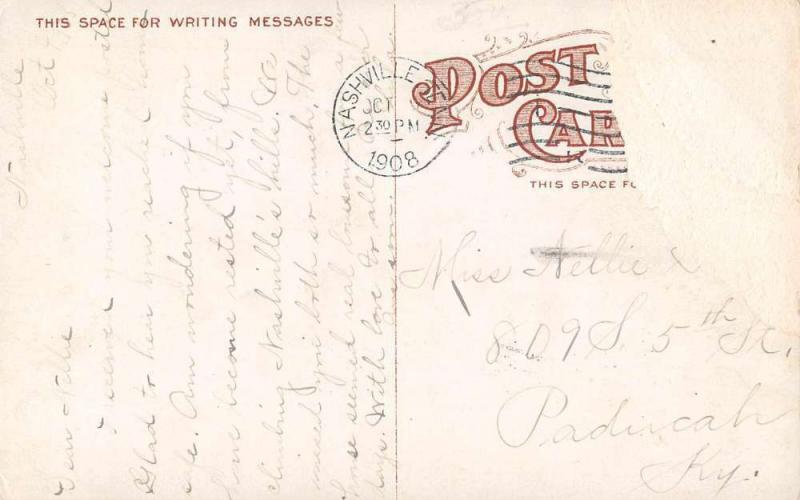 THIS SPACE FOR WRITING MESSAGES
Nashville
Oct
Dear Nellie
I received your
Glad to hear you reached home
safe. Am wondering if you
have become rested yet, from
climbing Nashville's hills. We
missed you both so much. The
house seemed real lonesome a few
days. With love to all
NASHVILLE
OCT
2 30 PM
1908
POST
CAR
THIS SPACE FO
Miss Nellie
809 S. 5th St.
Paducah
Ky.